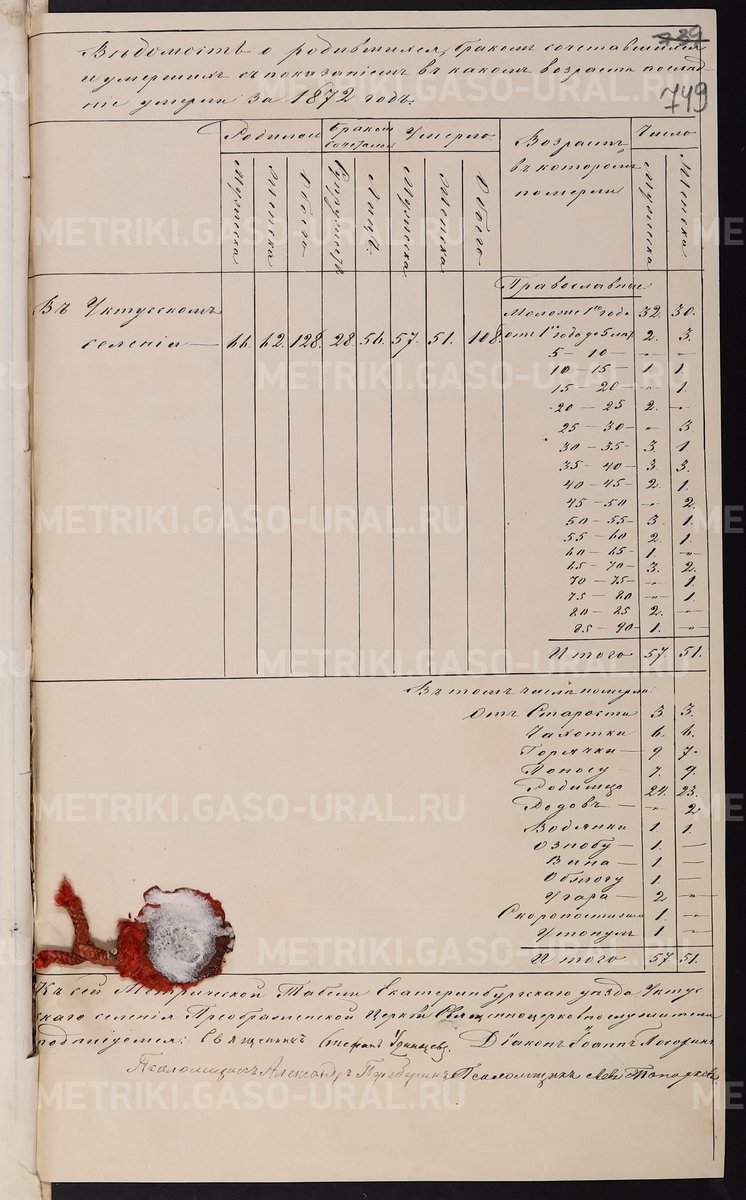 739
Вѣдомость о родившихся, бракомъ сочетавшихся
и умершихъ съ показаніемъ въ какомъ возрастѣ послѣд-
ніе умерли за 1872 годъ.
749
Родилось Бракомъ сочеталось Умерло Возрастъ въ которомъ померли Число
Мужеска Женска Обоего Супружествъ Лицъ Мужеска Женска Обоего Мужеска Женска
Православные
Въ Уктусскомъ Моложе 1го года 32. 30.
селеніи — 66. 62. 128. 28. 56. 57. 51. 108. отъ 1го года до 5 лѣтъ 2. 3.
5 — 10 — „ — „ —
10 — 15 — 1. 1.
15 — 20 — „ — 1.
20 — 25 2. „ —
25 — 30 — „ 3.
30 — 35 — 3. 1.
35 — 40 — 3. 3.
40 — 45 — 2. 1.
45 — 50 — „ 2.
50 — 55 — 3. 1.
55 — 60 2. 1.
60 — 65 — 1. „ —
65 — 70 — 3. 2.
70 — 75 — „ 1.
75 — 80 — „ 1.
80 — 85 2. „ —
85 — 90 — 1. „ —
Итого 57. 51.
Въ томъ числѣ померло:
Отъ Старости 3 3.
Чахотки 6. 6.
Горячки — 9. 7.
Поносу — 7. 9.
Родимца 24. 23.
Родовъ — „ 2.
Водянки 1. 1.
Ознобу — 1. —
Вина — 1. —
Обжогу 1. —
Угара — 2 „ —
Скоропостижно 1. „ —
Утонулъ 1 „ —
Итого 57. 51.
Къ сей Метрической Табели Екатеринбургскаго уѣзда Уктус-
скаго селенія Преображенской Церкви Священноцерковнослужители
подписуемся: Священникъ Стефанъ Діаконъ Іоаннъ
Псаломщикъ Александръ Псаломщикъ Левъ Топорковъ
METRIKI.GASO-URAL.RU